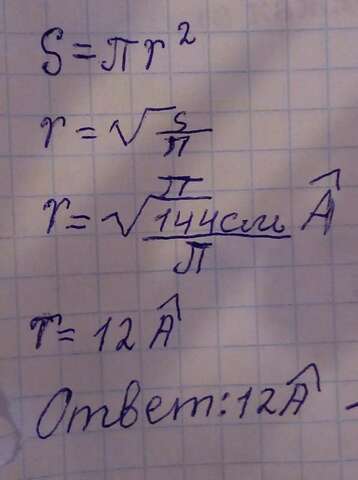 S = πr²
r = √S/π
r = √144см/π Â
r = 12 Â
Ответ: 12Â